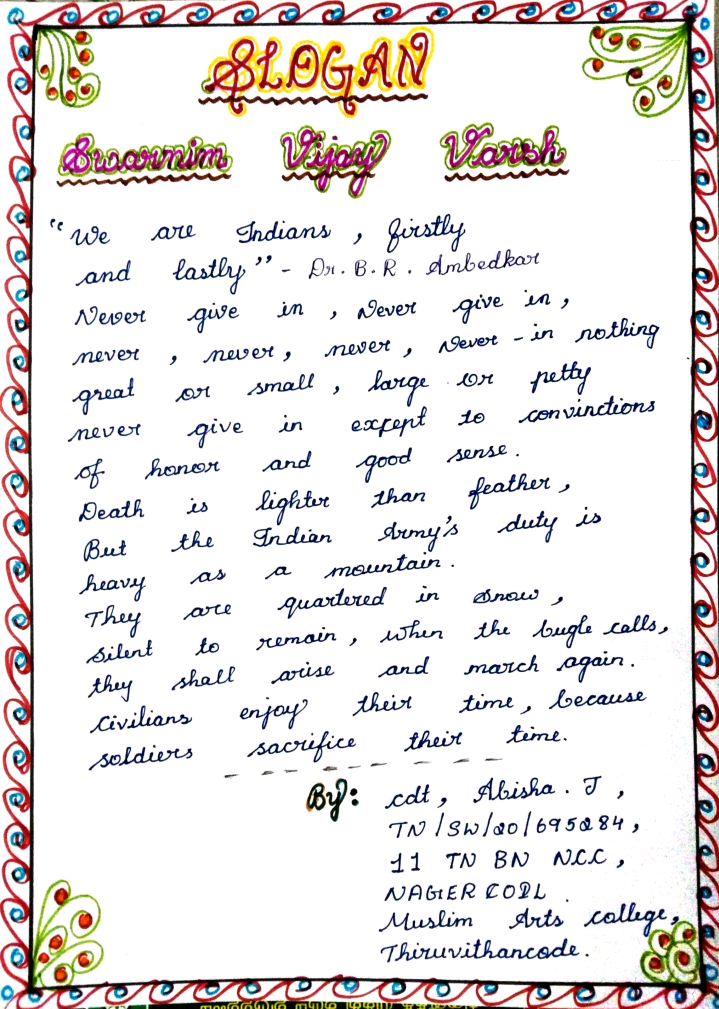 SLOGAN
Swarnim Vijay Varsh
"We are Indians , firstly
and lastly" - Dr. B. R. Ambedkar
Never give in , Never give in ,
never , never , never , Never - in nothing
great or small , large or petty
never give in exfept to convinctions
of honor and good sense .
Death is lighter than feather ,
But the Indian Army's duty is
heavy as a mountain .
They are quartered in snow ,
silent to remain , when the bugle calls ,
they shall arise and march again .
Civilians enjoy their time , because
soldiers sacrifice their time .
By: cdt , Abisha . J ,
TN / SW / 20 / 695284 ,
11 TN BN NCC ,
NAGERCOIL
Muslim Arts college ,
Thiruvithancode .